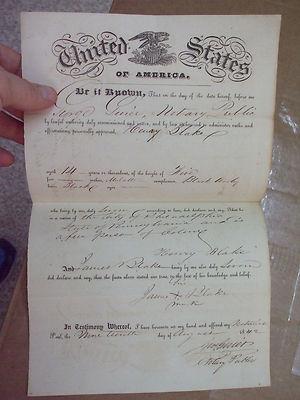 United States
OF AMERICA.
Be it Known, That on the day of the date hereof, before me
Notary Public
by lawful authority duly commissioned and sworn, and by law authorized to administer oaths and
affirmations, personally appeared, Henry Blake
aged 14 years or thereabouts, of the height of Five
feet inches complexion, Black
hair, Black eyes
who being by me, duly Sworn according to law, did declare and say, That he
is a native of the City of Philadelphia
State of Pennsylvania and is
a free person of Colour
Henry Blake
And James Blake being by me also duly Sworn
did declare and say, that the facts above stated are true, to the best of his knowledge and belief.
his
James X Blake
mark
In Testimony Whereof, I have hereunto set my hand and affixed my Notarial
Seal, the day of August
Notary Public